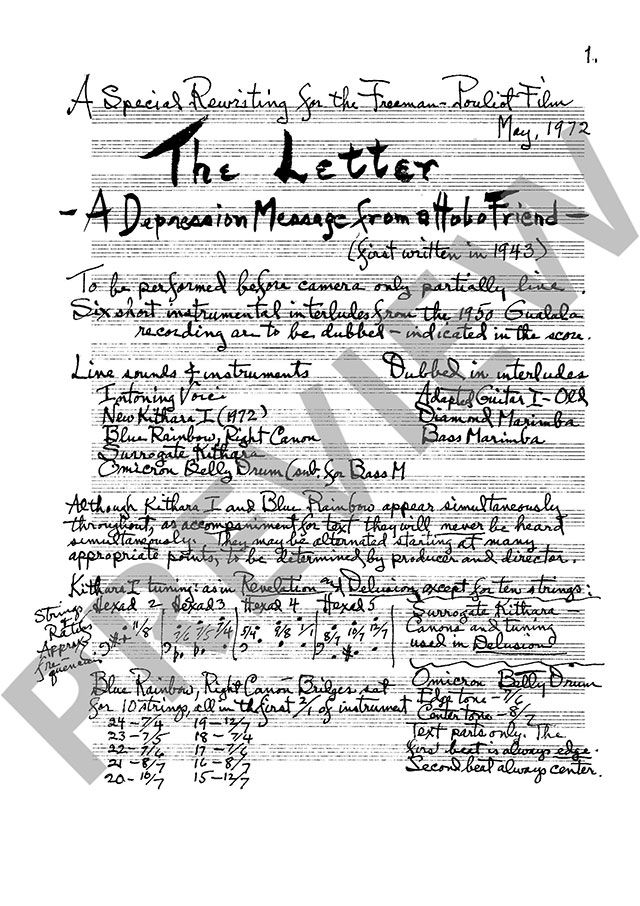 1.
A Special Rewriting for the Freeman-Pouliot Film
May, 1972
The Letter
- A Depression Message from a Hobo Friend -
(first written in 1943)
To be performed before camera only partially live.
Six short instrumental interludes from the 1950 Gualala
recording are to be dubbed - indicated in the score.
Live sounds & instruments
Intoning Voice
New Kithara I (1972)
Blue Rainbow, Right Canon
Surrogate Kithara
Omicron Belly Drum (sub. for Bass M
Dubbed in interludes
Adapted Guitar I - Old
Diamond Marimba
Bass Marimba
Although Kithara I and Blue Rainbow appear simultaneously
throughout, as accompaniment for text they will never be heard
simultaneously. They may be alternated starting at many
appropriate points, to be determined by producer and director.
Kithara I tuning: as in Revelation and Delusion except for ten strings:
Hexad 2 - Hexad 3 Hexad 4 - Hexad 5
Strings
&
Ratios
Approx.
Frequencies
11/8 7/6 7/5 7/4 5/4 9/8 1/1 8/7 10/7 12/7
Surrogate Kithara -
Canons and tuning
used in Delusion
Blue Rainbow, Right Canon - Bridges set
for 10 strings, all in the first 2/1 of instrument
24 - 7/4 19 - 12/7
23 - 7/5 18 - 7/4
22 - 7/6 17 - 7/6
21 - 8/7 16 - 8/7
20 - 10/7 15 - 12/7
Omicron Belly Drum
Edge tone - 7/6
Center tone - 8/7
Text parts only. The
first beat is always edge.
Second beat always center.
PREVIEW